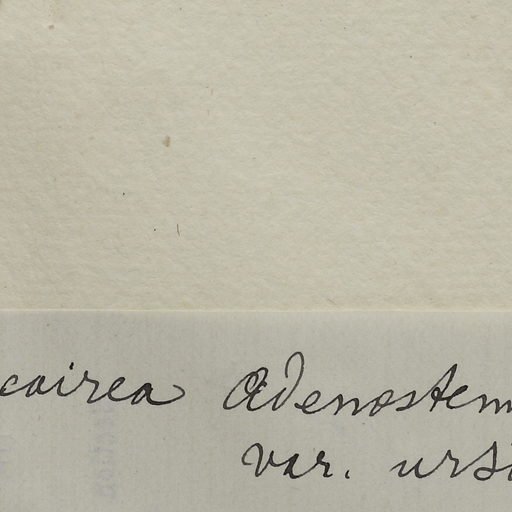 cairea Adenostem
var. ursi